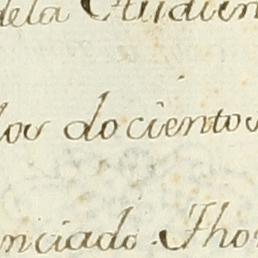 dela Audien
los docientos
enciado. Thom